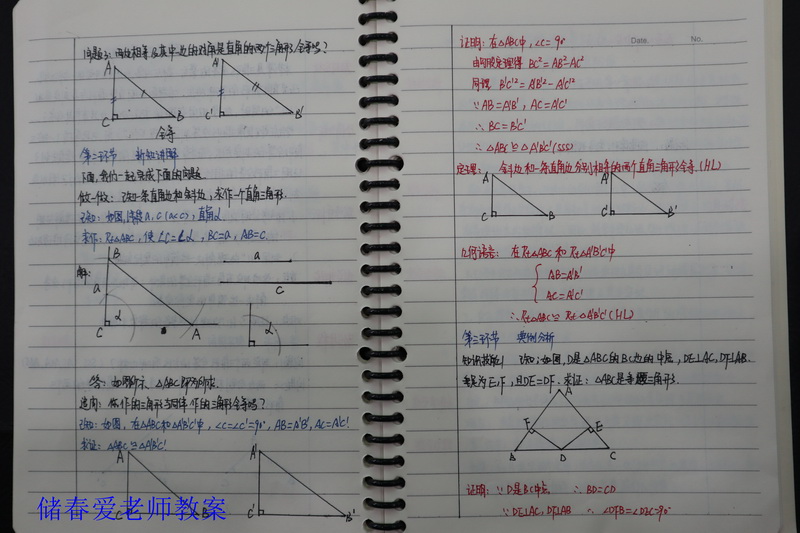 问题3:两边相等及其中一边的对角是直角的两个三角形全等吗?
A
A'
C
B
C'
B'
全等
第二环节 新知讲解
下面,我们一起完成下面的问题
做一做:已知一条直角边和斜边,求作一个直角三角形.
已知:如图,线段a,c(a<c),直角α
求作:Rt△ABC,使∠C=∠α,BC=a,AB=c.
解:
B
a
c
a
C
α
A
α
答:如图所示,△ABC即为所求.
追问:你作的三角形与同伴作的三角形全等吗?
已知:如图,在△ABC和△A'B'C'中,∠C=∠C'=90°,AB=A'B',AC=A'C'
求证:△ABC≌△A'B'C'
A
A'
C'
B'
储春爱老师教案
Date.
No.
证明:在△ABC中,∠C=90°
由勾股定理得 BC²=AB²-AC²
同理 B'C'²=A'B'²-A'C'²
∵AB=A'B',AC=A'C'
∴BC=B'C'
∴△ABC≌△A'B'C'(SSS)
定理:斜边和一条直角边分别相等的两个直角三角形全等.(HL)
A
A'
C
B
C'
B'
几何语言:在Rt△ABC和Rt△A'B'C'中
AB=A'B'
AC=A'C'
∴Rt△ABC≌Rt△A'B'C'(HL)
第三环节 典例分析
已知:如图,D是△ABC的BC边的中点,DE⊥AC,DF⊥AB,
垂足为E,F,且DE=DF.求证:△ABC是等腰三角形.
A
F
E
B
D
C
证明:∵D是BC中点 ∴BD=CD
∵DE⊥AC,DF⊥AB ∴∠DFB=∠DEC=90°